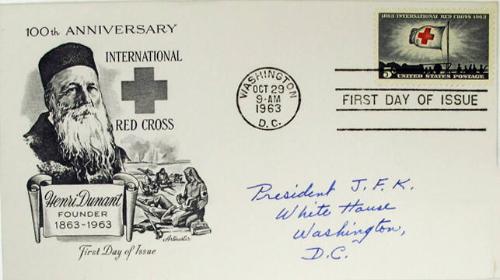 100th ANNIVERSARY
INTERNATIONAL
RED CROSS
Henri Dunant
FOUNDER
1863-1963
Artmaster
First Day of Issue
WASHINGTON
OCT 29
9-AM
1963
D.C.
1863-INTERNATIONAL RED CROSS-1963
5c
UNITED STATES POSTAGE
FIRST DAY OF ISSUE
President J.F.K.
White House
Washington,
D.C.